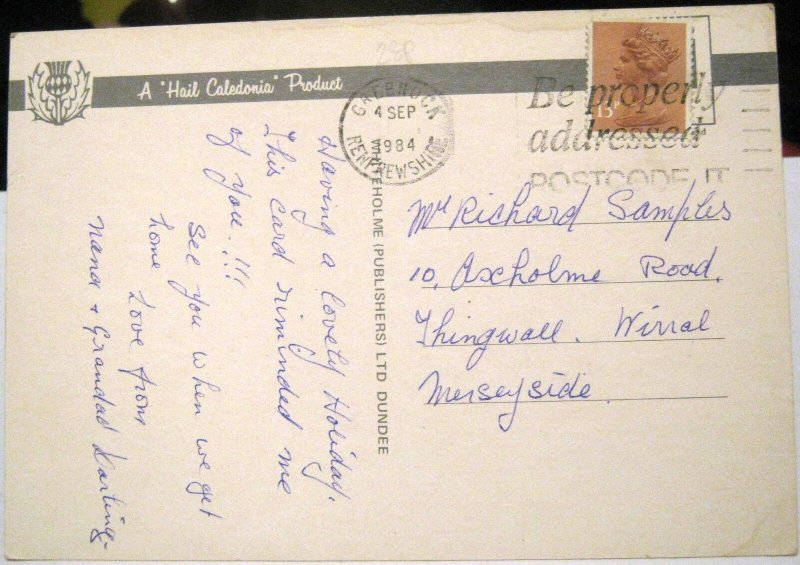 A "Hail Caledonia" Product
GREENOCK
4 SEP
1984
RENFREWSHIRE
Be properly
addressed
POSTCODE IT
15
WHITEHOLME (PUBLISHERS) LTD DUNDEE
Having a lovely Holiday.
This card riminded me
of you.!!!
See you when we get
home Love from
Nana & Grandad
Mr Richard Samples
10, Axholme Road.
Thingwall. Wirral
Merseyside.